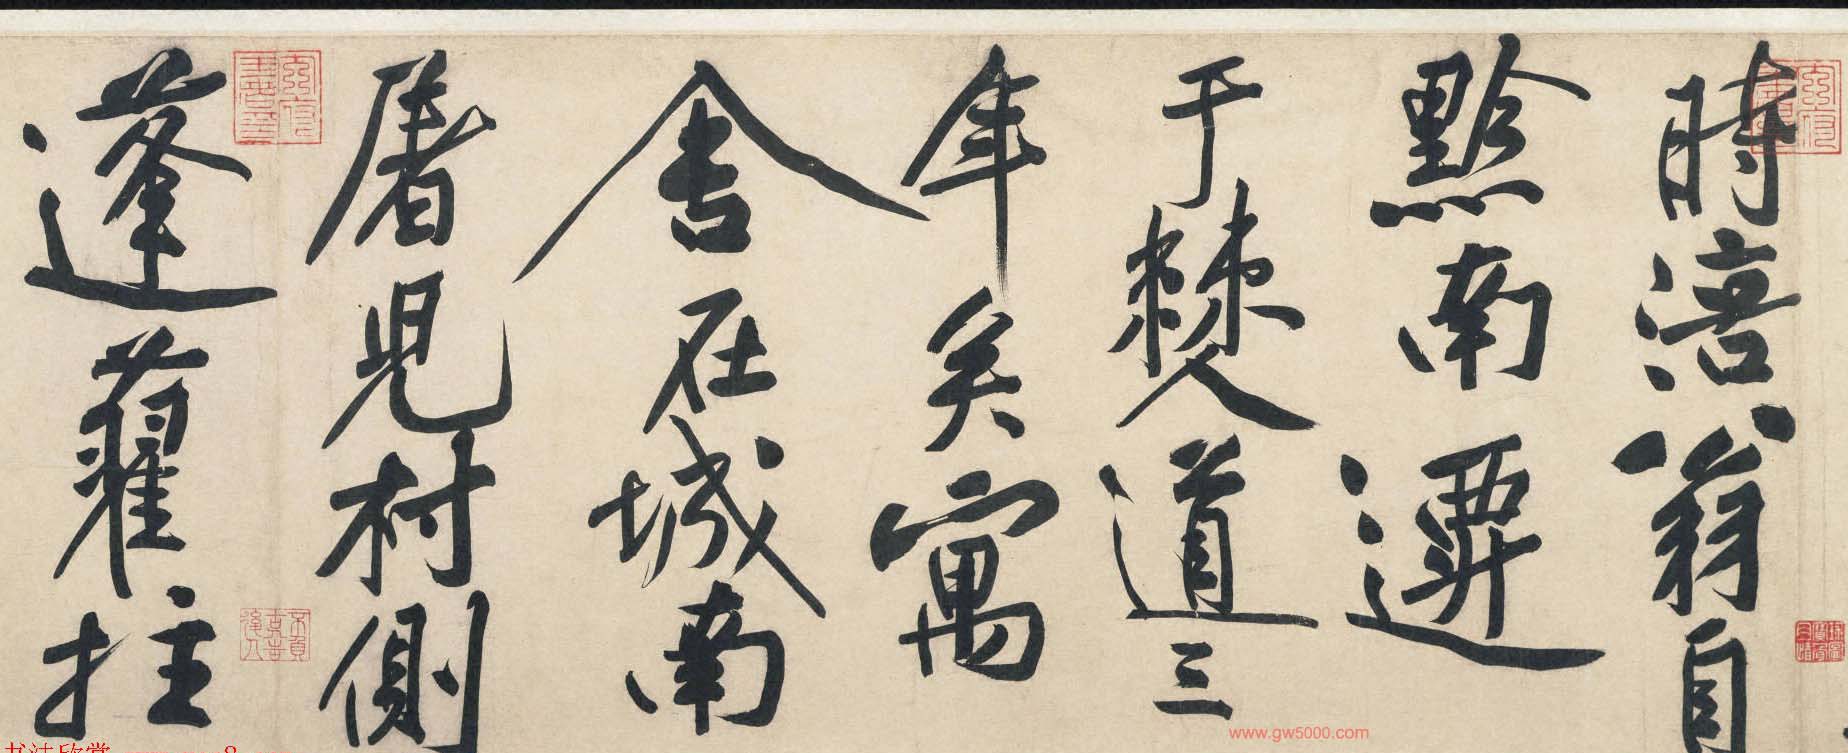 時涪翁自
黔南遷
于僰道三
年矣寓
舍在城南
屠兒村側
蓬藋拄
www.gw5000.com
书法欣赏